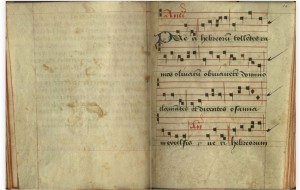 Pueri hebreorum tollentes ra
mos olivarum obviaverunt domino
clamantes et dicentes osanna
in excelsis hebreorum